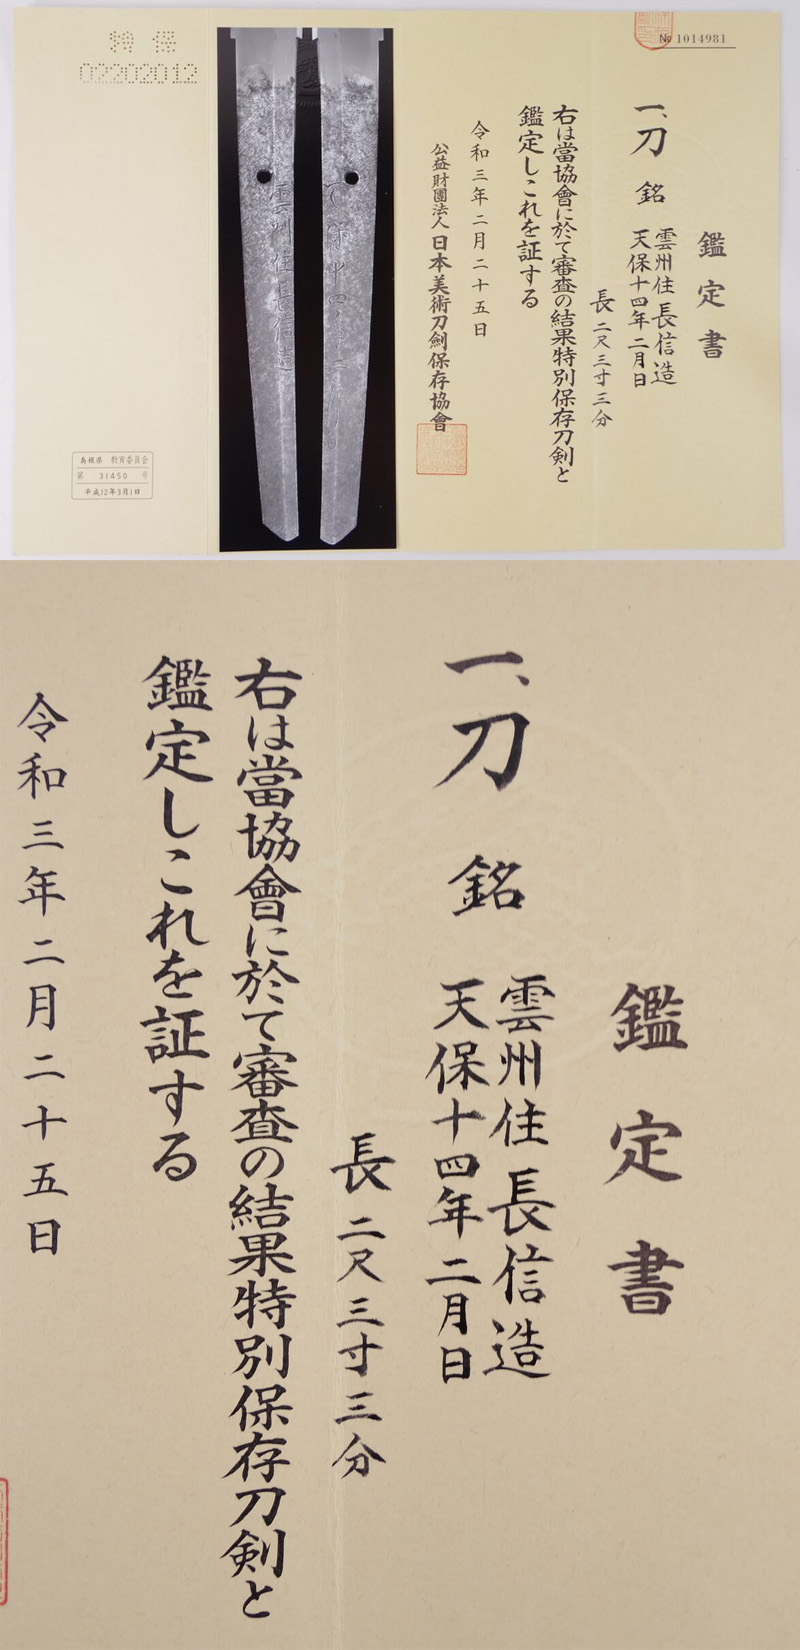 № 1014981
鑑定書
一、刀 銘 雲州住長信造
天保十四年二月日
長二尺三寸三分
右は當協會に於て審査の結果特別保存刀剣と
鑑定しこれを証する
令和三年二月二十五日
公益財團法人日本美術刀剣保存協會
雲州住長信造
特 保
02202012
島根県 教育委員会
第 31450 号
平成12年3月1日
鑑定書
一、刀 銘 雲州住長信造
天保十四年二月日
長二尺三寸三分
右は當協會に於て審査の結果特別保存刀剣と
鑑定しこれを証する
令和三年二月二十五日